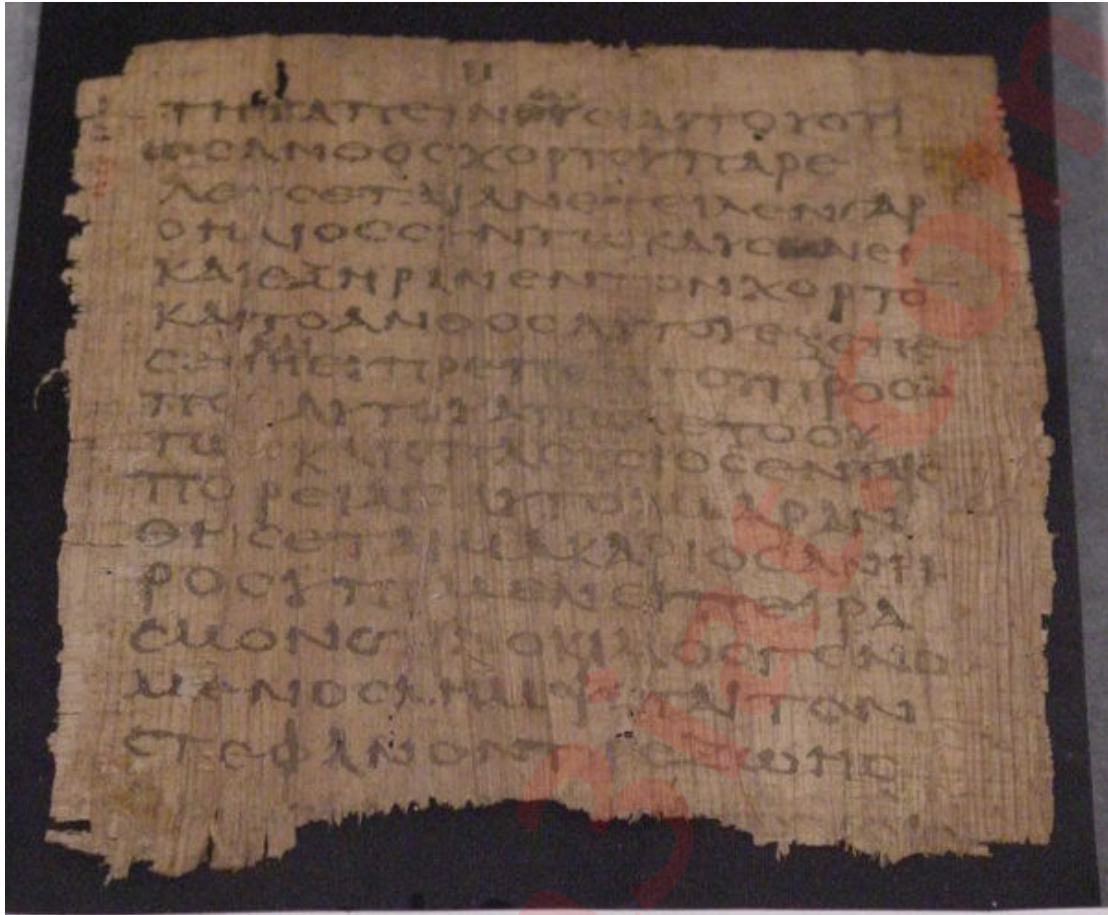 ΤΗΤΑΠΕΙΝΩϹΙΑΥΤΟΥΟΤΙ
ΩϹΑΝΘΟϹΧΟΡΤΟΥΠΑΡΕ
ΛΕΥϹΕΤΑΙΑΝΕΤΕΙΛΕΝΓΑΡ
ΟΗΛΙΟϹϹΥΝΤΩΚΑΥϹΩΝΕΙ
ΚΑΙΕΞΗΡΑΝΕΝΤΟΝΧΟΡΤΟ
ΚΑΙΤΟΑΝΘΟϹΑΥΤΟΥΕΞΕΠΕ
ΑΥΤΟΥΑΠΩΛΕΤΟΟΥ
ΤΩϹΚΑΙΟΠΛΟΥϹΙΟϹΕΝΤΑΙϹ
ΠΟΡΕΙΑΙϹΑΥΤΟΥΜΑΡΑΝ
ΘΗϹΕΤΑΙΜΑΚΑΡΙΟϹΑΝΗ
ΡΟϹΥΠΟΜΕΝΕΙΠΕΙΡΑ
ϹΜΟΝΟΤΙΔΟΚΙΜΟϹΓΕΝΟ
ΜΕΝΟϹΛΗΜΨΕΤΑΙΤΟΝ
ϹΤΕΦΑΝΟΝΤΗϹΖΩΗϹ